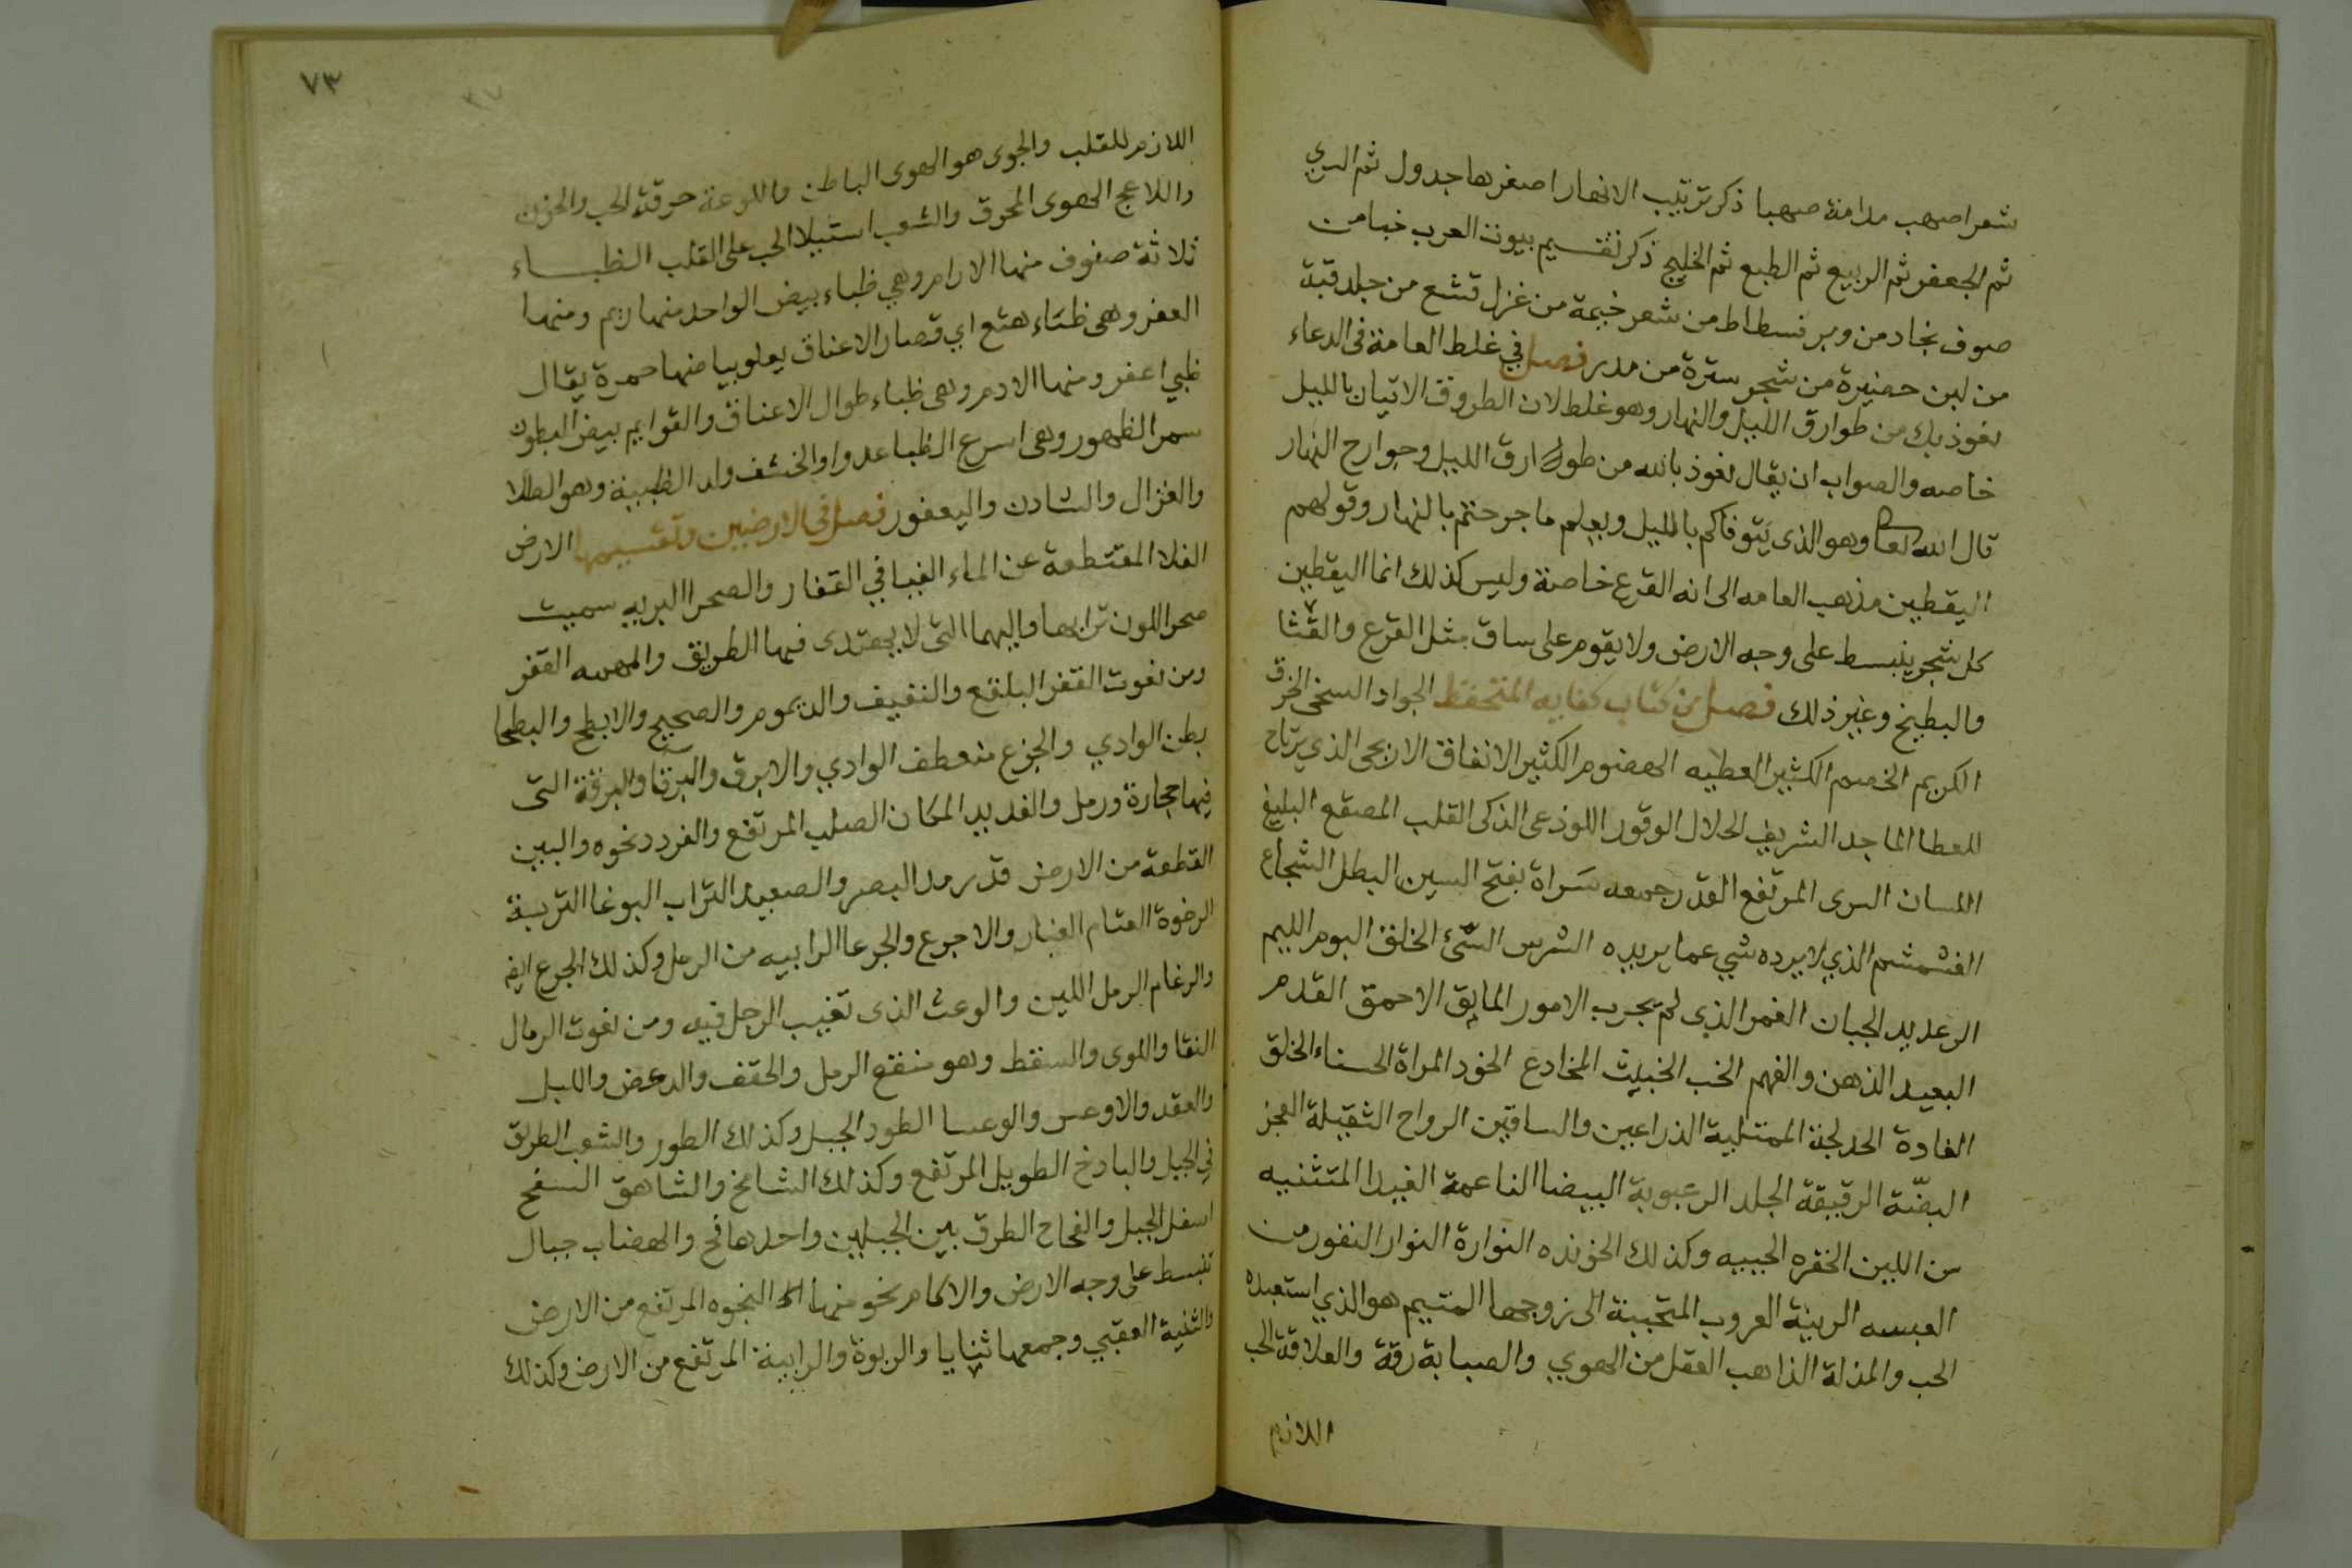 شعر اصهب مدامة صهبا ذكر ترتيب الانهار اصغرها جدول ثم السري
ثم الجعفر ثم الربيع ثم الطبع ثم الخليج ذكر تقسيم بيوت العرب خبا من
صوف بجاد من وبر فسطاط من شعر خيمة من غزل قشع من جلد قبة
من لبن حضيرة من شجر سترة من مدر فصل في غلط العامة في الدعاء
نعوذ بك من طوارق الليل والنهار وهو غلط لان الطروق الاتيان بالليل
خاصه والصواب ان يقال نعوذ بالله من طوارق الليل وجوارح النهار
قال الله تعالى وهو الذي يتوفاكم بالليل ويعلم ما جرحتم بالنهار وقولهم
اليقطين مذهب العامه الى انه القرع خاصة وليس كذلك انما اليقطين
كل شجر ينبسط على وجه الارض ولا يقوم على ساق مثل القرع والقثا
والبطيخ وغير ذلك فصل من كتاب كفايه المتحفظ الجواد السخي الخرق
الكريم الخضم الكثير العطيه الهضوم الكثير الانفاق الاريحي الذي يرتاح
للعطا الماجد الشريف الحلال الوقور اللوذعي الذكي القلب المصقع البليغ
اللسان السرى المرتفع القدر جمعه سَراة بفتح السين البطل الشجاع
الغشمشم الذي لا يرده شي عما يريده الشرس السّئ الخلق البوم الليم
الرعديد الجبان الغمر الذي لم يجرب الامور المايق الاحمق القدم
البعيد الذهن والفهم الخب الخبيث المخادع الخود المراة الحسناء الخلق
الغادة الخدلجة الممتلية الذراعين والساقين الرواح الثقيلة العجز
البضّة الرقيقة الجلد الرعبوبة البيضا الناعمة الغيدا المتثنيه
من اللين الخفره الحييه وكذلك الخونده النوارة النوار النفور من
العبسه الريبة العروب المتحببة الى زوجها المتيم هو الذي استعبده
الحب والمذلة الذاهب العقل من الهوي والصبابة رقة والعلاقة الحب
اللازم
٧٣
اللازم للقلب والجوى هو الهوى الباطن واللوعة حرقة الحب والحزن
واللاعج الهوى المحرق والشعب استيلا الحب على القلب الظباء
ثلاثة صفوف منها الارام وهي ظباء بيض الواحد منها ريم ومنها
العفر وهى ظباء هنع اي قصار الاعناق يعلو بياضها حمرة يقال
ظبي اعفر ومنها الادم وهى ظباء طوال الاعناق والقوايم بيض البطون
سمر الظهور وهى اسرع الظبا عدوا والخشف ولد الظبية وهو الطلا
والغزال والشادن واليعفور فصل في الارضين وتقسيمها الارض
الفلا المقتطعة عن الماء الفيافي القفار والصحرا البريه سميت
صحرا للون ترابها واليهما التي لا يهتدى فيها الطريق والمهمه القفر
ومن نعوت القفر البلقع والنفيف والديموم والصحيح والابطح والبطحا
بطن الوادي والجزع منعطف الوادي والابرق والبرقا والبرقة التى
فيها حجارة ورمل والفديد المكان الصلب المرتفع والفردد نحوه والبين
القطعة من الارض قدر مد البصر والصعيد التراب البوغا التربة
الرخوة القتام الغبار والاجرع والجرعا الرابيه من الرمل وكذلك الجرع ايض
والرغام الرمل اللين والوعث الذى تغيب الرجل فيه ومن نعوت الرمال
النقا واللوى والسقط وهو منقع الرمل والحقف والدعص واللبب
والعقد والاوعس والوعسا الطود الجبل وكذلك الطور والشعب الطريق
في الجبل والبادخ الطويل المرتفع وكذلك الشامخ والشاهق السفح
اسفل الجبل والفجاج الطرق بين الجبلين واحدها فج والهضاب جبال
تنبسط على وجه الارض والاكام نحو منها النجوه المرتفع من الارض
والثنية العقبي وجمعها ثنايا والربوة والرابية المرتفع من الارض وكذلك